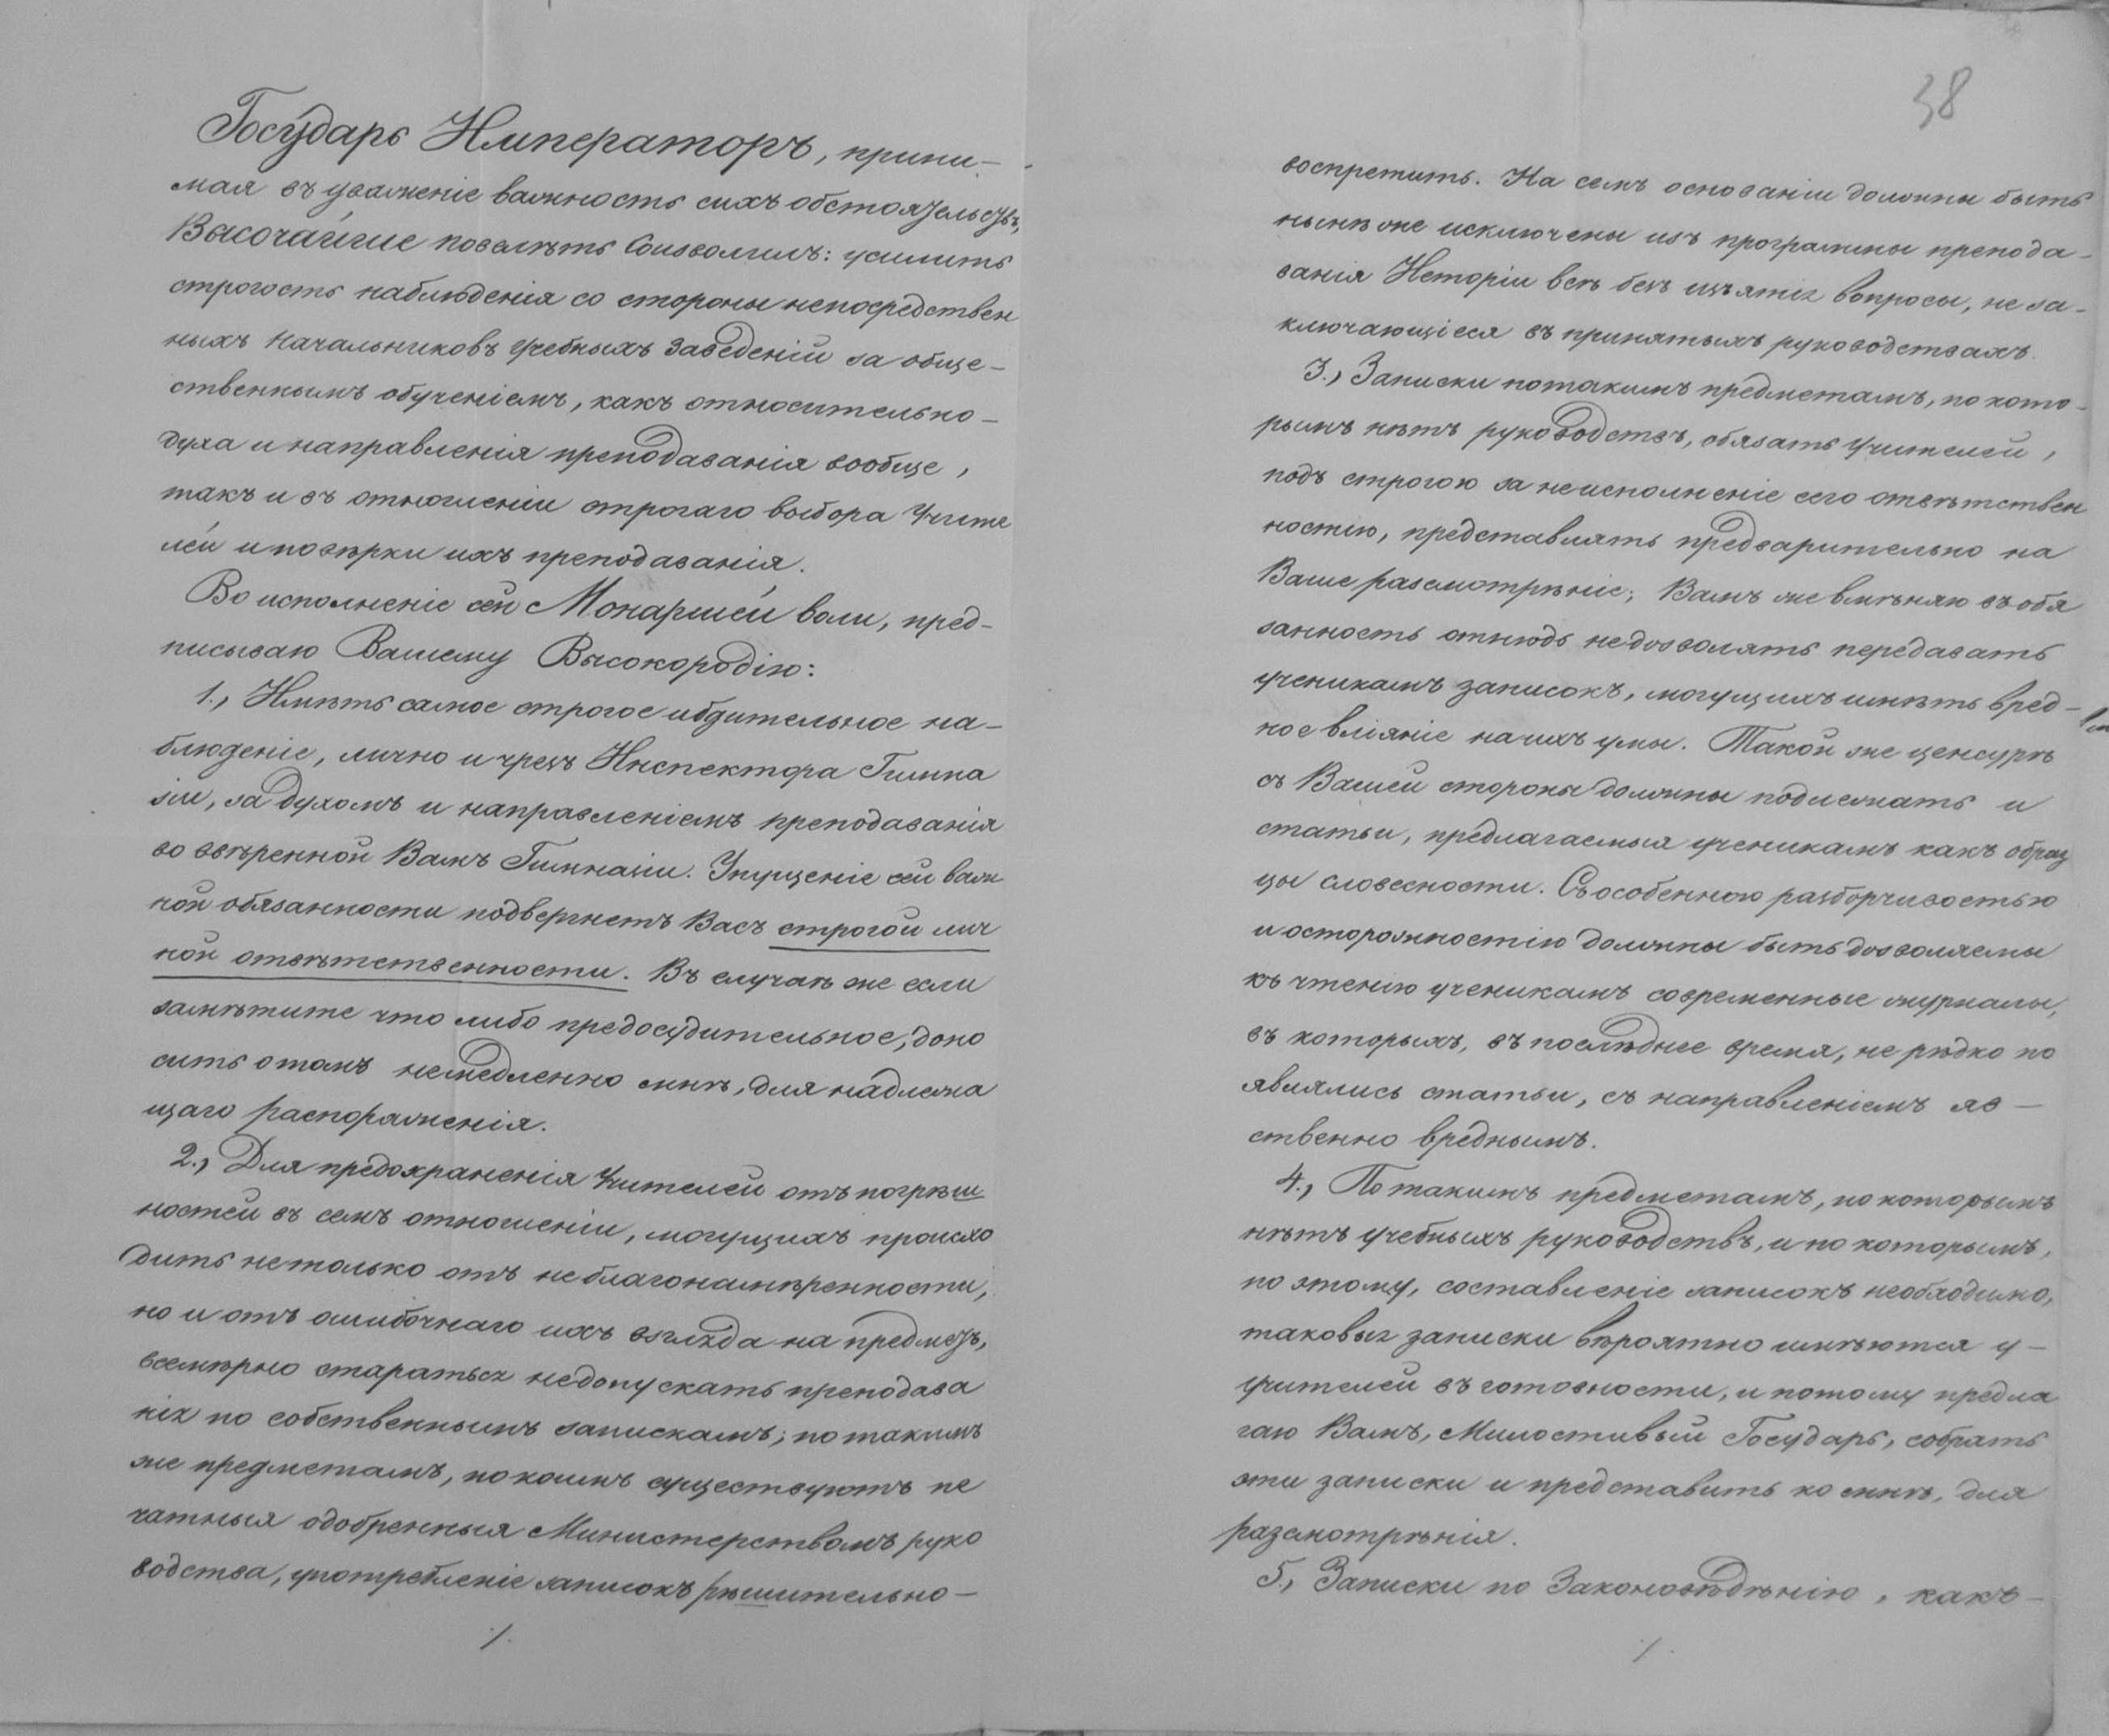 Государь Императоръ, прини-
мая въ уваженіе важность сихъ обстоятельствъ,
Высочайше повелѣть Соизволилъ: усилить
строгость наблюденія со стороны непосредствен
ныхъ Начальниковъ Учебныхъ Заведеній за обще-
ственнымъ обученіемъ, какъ относительно-
духа и направленія преподаванія вообще,
такъ и въ отношеніи строгаго выбора Учите
лей и повѣрки ихъ преподаванія.
Во исполненіе сей Монаршей воли, пред-
писываю Вашему Высокородію:
1., Имѣть самое строгое и бдительное на-
блюденіе, лично и чрезъ Инспектора Гимна
зіи, за духомъ и направленіемъ преподаванія
во ввѣренной Вамъ Гимназіи. Упущеніе сей важ
ной обязанности подвергнетъ Васъ строгой лич
ной отвѣтственности. Въ случаѣ же если
замѣтите что либо предосудительное, доно
сить о томъ немедленно мнѣ, для надлежа
щаго распоряженія.
2., Для предохраненія Учителей отъ погрѣш
ностей въ семъ отношеніи, могущихъ происхо
дить не только отъ неблагонамѣренности,
но и отъ ошибочнаго ихъ взгляда на предметъ,
всемѣрно стараться недопускать преподава
нія по собственнымъ запискамъ; по такимъ
же предметамъ, по коимъ существуютъ пе
чатныя одобренныя Министерствомъ руко
водства, употребленіе записокъ рѣшительно-
/.
38
воспретить. На семъ основаніи должны быть
нынѣ же исключены изъ программы препода-
ванія Исторіи всѣ безъ изъятія вопросы, не за-
ключающіеся въ принятыхъ руководствахъ.
3., Записки по такимъ предметамъ, по кото-
рымъ нѣтъ руководствъ, обязать Учителей,
подъ строгою за неисполненіе сего отвѣтствен
ностію, представлять предварительно на
Ваше разсмотрѣніе; Вамъ же вмѣняю въ обя
занность отнюдь недозволять передавать
ученикамъ записокъ, могущихъ имѣть вред-
ное вліяніе на ихъ умы. Такой же ценсурѣ
съ Вашей стороны должны подлежать и
статьи, предлагаемыя ученикамъ какъ образ
цы словесности. Съ особенною разборчивостью
и осторожностію должны быть дозволяемы
къ чтенію ученикамъ современные журналы,
въ которыхъ, въ послѣднее время, не рѣдко по
являлись статьи, съ направленіемъ яв-
ственно вреднымъ.
4., По такимъ предметамъ, по которымъ
нѣтъ учебныхъ руководствъ, и по которымъ,
по этому, составленіе записокъ необходимо,
таковыя записки вѣроятно имѣются у-
учителей въ готовности, и потому предла
гаю Вамъ, Милостивый Государь, собрать
эти записки и представить ко мнѣ, для
разсмотрѣнія.
5., Записки по Законовѣдѣнію, какъ-
/.